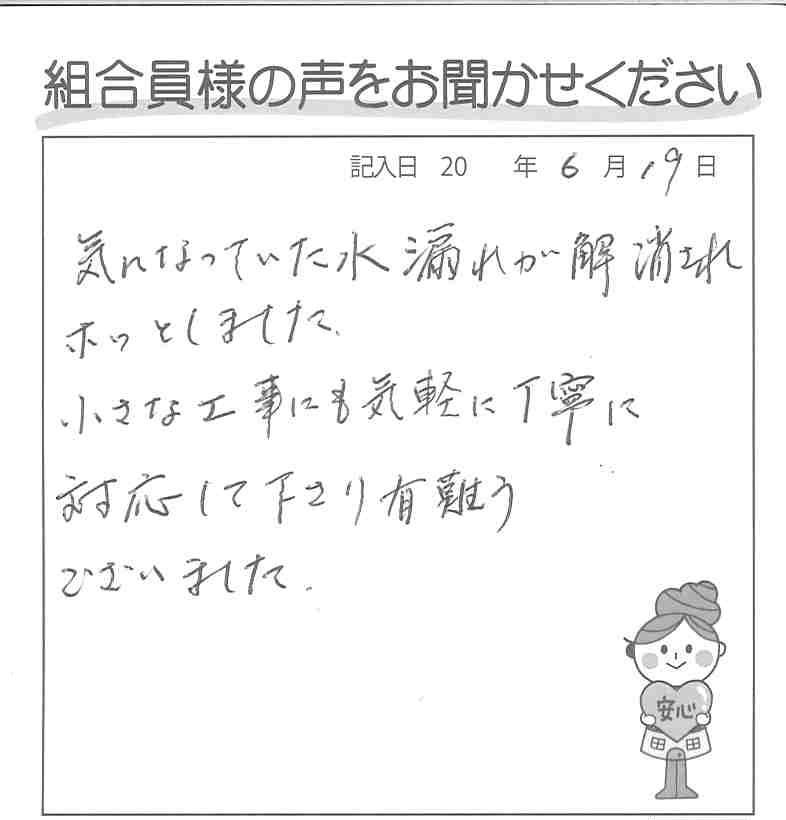 組合員様の声をお聞かせください
記入日 20 年 6 月 19 日
気になっていた水漏れが解消され
ホッとしました。
小さな工事にも気軽に丁寧に
対応して下さり有難う
ございました。
安心